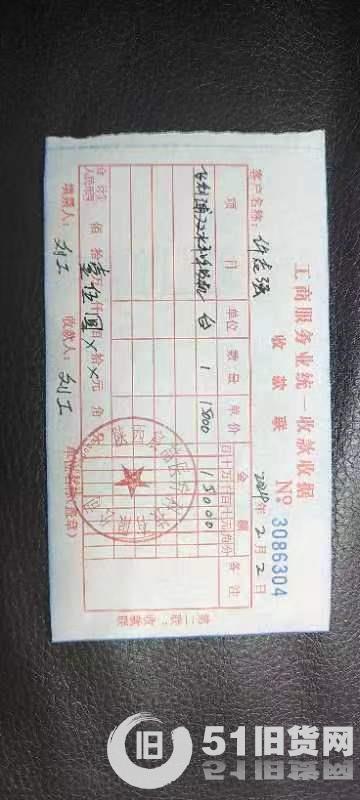 工商服务业统一收款收据
收款联
№ 3086304
客户名称: 许志强
2024年2月2日
项 门 单位 数量 单价 金额 备注
百十万千百十元角分
台 1 15000 15000
合计 人民币 佰 拾壹万伍仟 佰 拾 元 角 分
填票人: 刘工 收款人: 刘工 单位名称(盖章)
第二联:收款联
旧 51旧货网